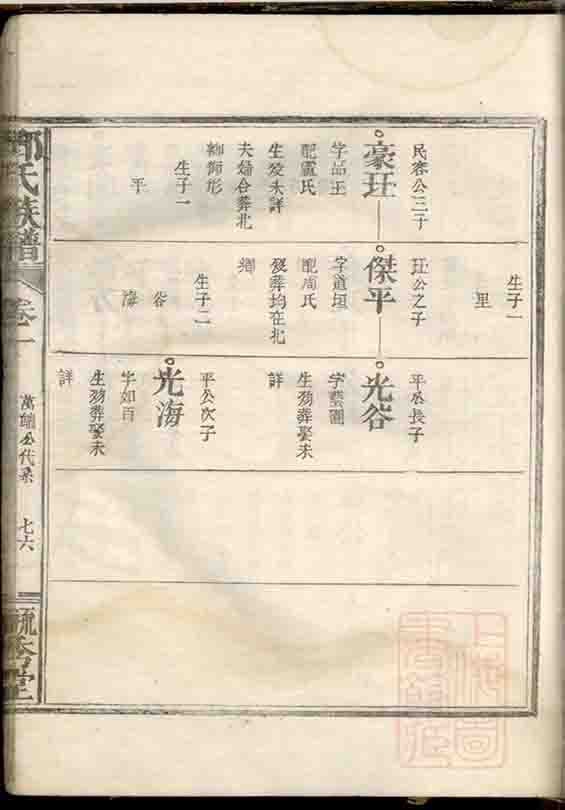 民容公三子
豪玨
字品玉
配盧氏
生歿未詳
夫婦合葬北
獅形
生子一
平
生子一
里
玨公之子
傑平
字道垣
配周氏
歿葬均在北
鄉
生子二
谷
海
平公長子
光谷
字藝圃
生歿葬娶未
詳
平公次子
光海
字如百
生歿葬娶未
詳
氏族譜
卷一
公代系
七六
堂
上海圖書館藏